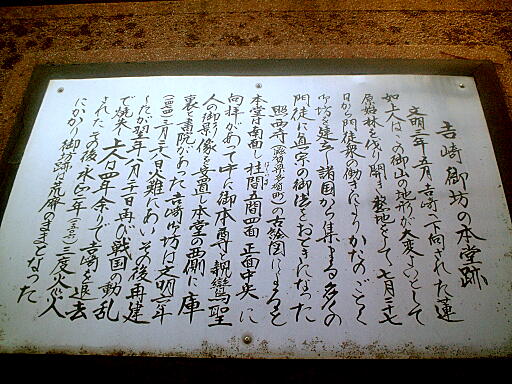 吉崎御坊の本堂跡
文明三年五月、吉崎へ下向された蓮
如上人は、この御山の地形が大変よいとして
原始林を伐り開き整地をして、七月二十七
日から門徒衆の働きによりかたのごとく
坊を建立し諸国から集まる多くの
門徒に真宗の御法をおときになった
照西寺(滋賀県)の古絵図によると
本堂は南面し柱間五間四面 正面中央に
向拝があって中に御本尊と親鸞聖
人の御影像を安置し本堂の西側に庫
裏と書院があった。吉崎御坊は文明六年
三月二十八日火難にあい、その後再建
したが翌年八月二十一日再び戦国の動乱
で焼亡 上人は四年余りで吉崎を退去
された。その後、永正三年 三度兵火
にかかり御坊跡は荒廃のままとなった